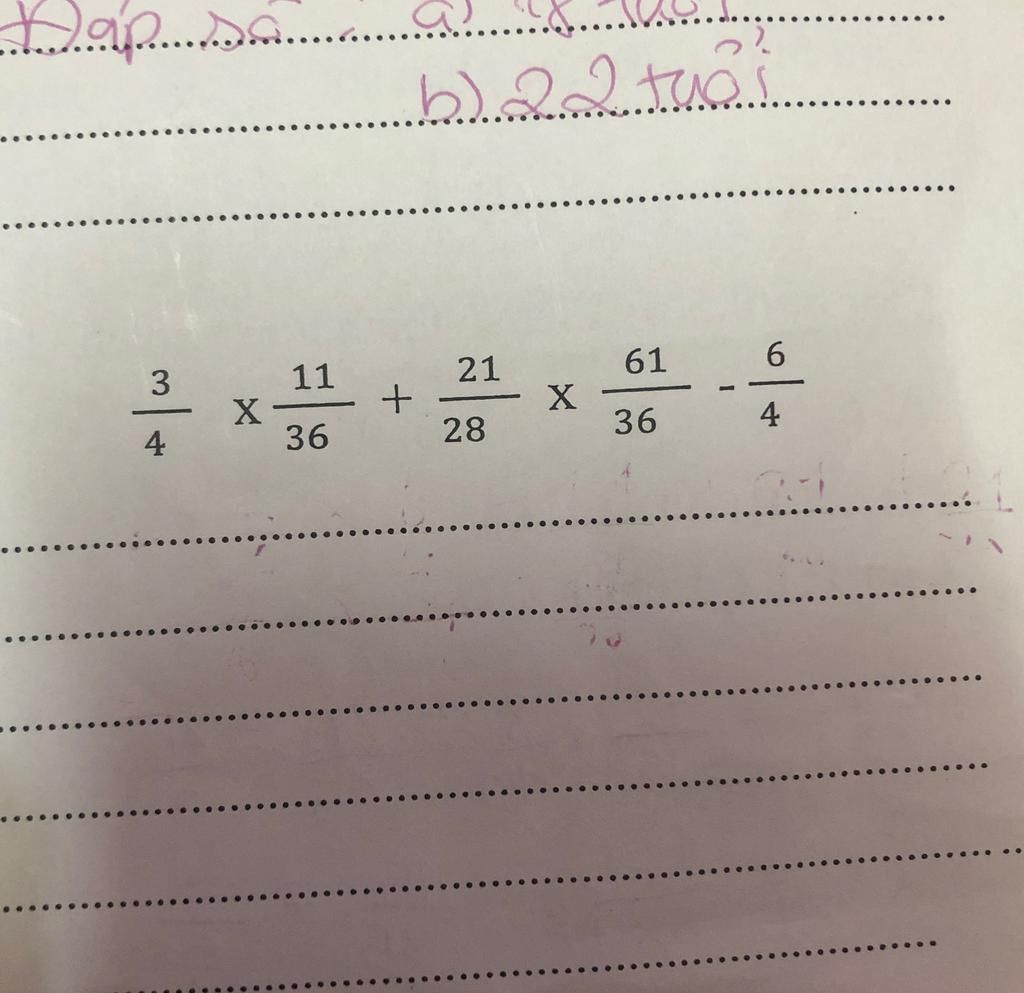 Đáp số : a)
b) 22 tuổi
3/4 x 11/36 + 21/28 x 61/36 - 6/4